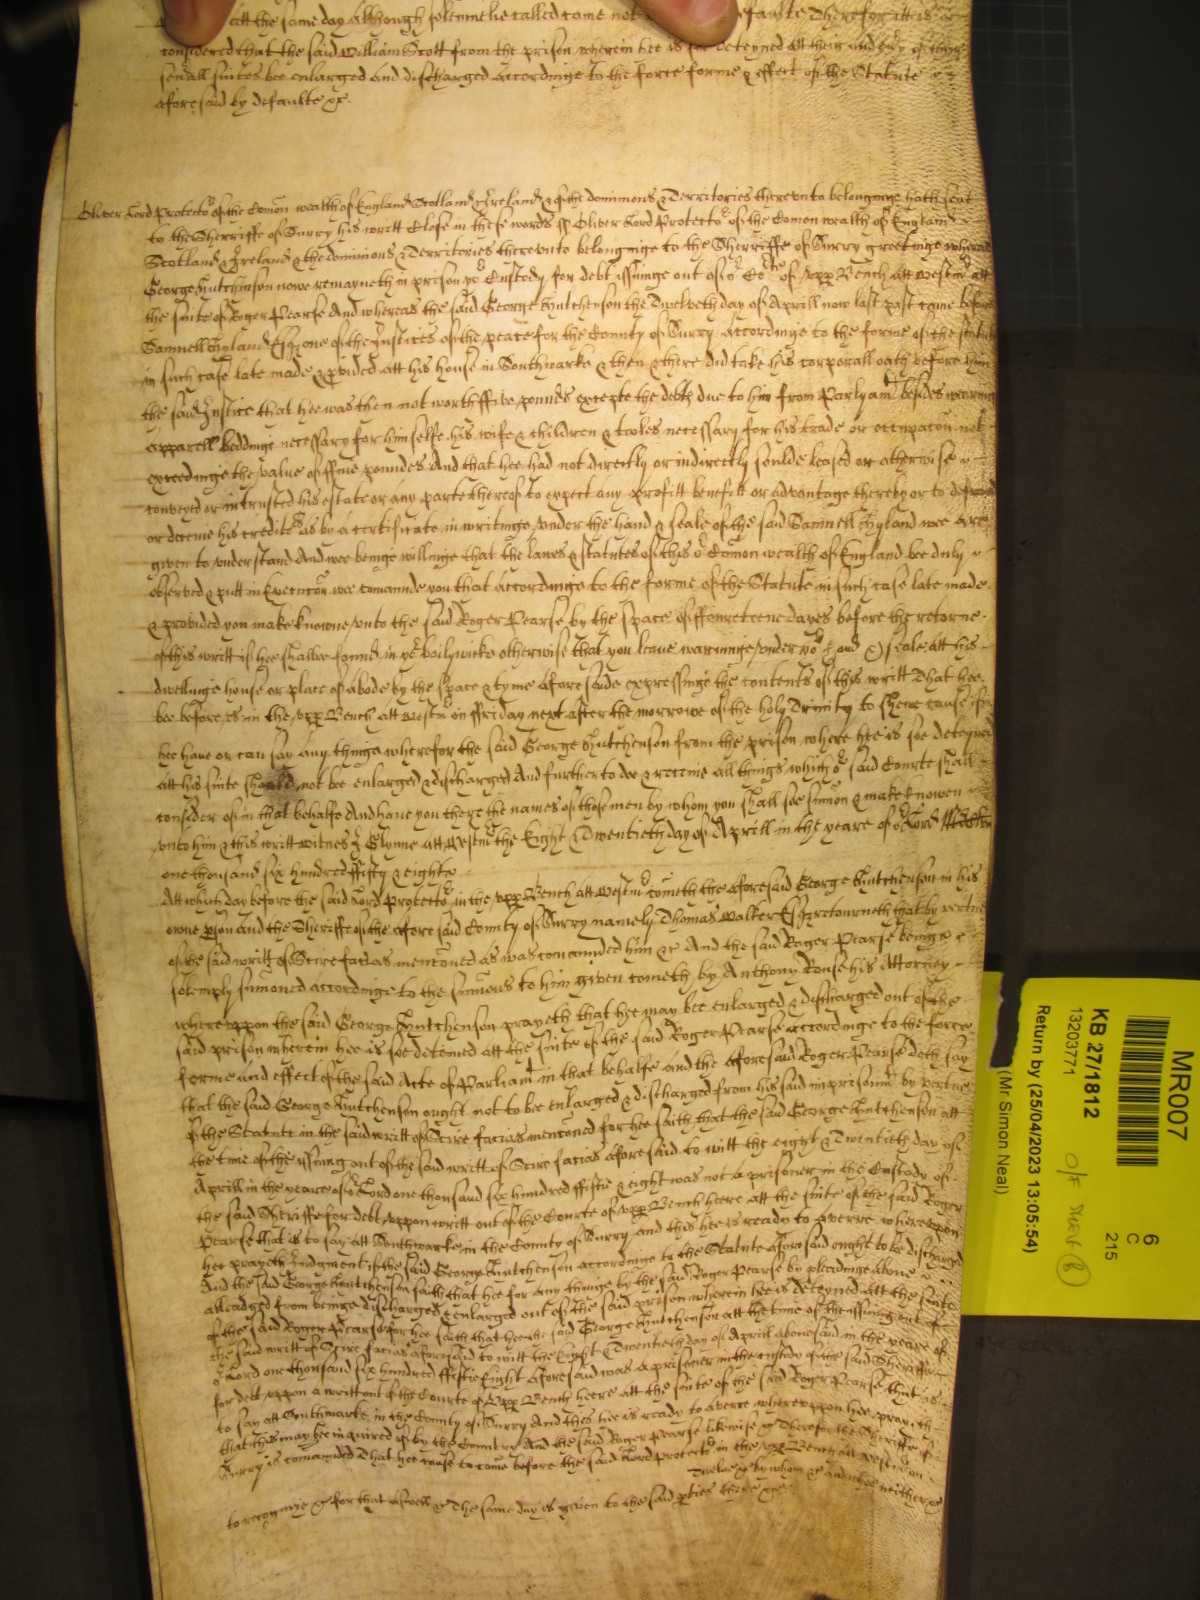 att the same day although solemnelie called came not defaulte Therefore itt is
considered that the said William Scott from the prison wherein hee is soe deteyned att their and every of their
sev'all suites bee enlarged and discharged accordinge to the force forme & effect of the Statute
aforesaid by defaulte &c
Oliver Lord Protecto' of the Comon wealth of England Scotland & Ireland & of the dominions & Territories therevnto belonginge hath sent
to the Sherriffe of Surry his writt Close in these words ss Oliver Lord Protecto' of the Comon wealth of England
Scotland & Ireland & the dominions & Territories therevnto belonginge to the Sherriffe of Surry greetinge whereas
George Hutchinson nowe remayneth in prison in yo' Custody for debt issuinge out of o' Co'te of vpp Bench att Westm' att
the suite of Roger Pearse And whereas the said George Hutchenson the Twelveth day of Aprill now last past came before
Samuell Hyland Esq' one of the Justices of the peace for the County of Surry accordinge to the forme of the statute
in such case late made & p'vided att his house in Southwarke & then & there did take his corporall oath before him
the said Justice that hee was then not worth ffive pounds excepte the debt due to him from Parlyam' besides wearing
apparell beddinge necessary for himselfe his wife & children & tooles necessary for his trade or occupacon not
exceedinge the value of ffive poundes And that hee had not directly or indirectly soulde leased or otherwise
conveyed or intrusted his estate or any parte thereof to expect any profitt benefitt or advantage thereby or to defraud
or deceive his credito's as by a certificate in writinge vnder the hand & seale of the said Samuell Hyland wee are
given to vnderstand And wee beinge willinge that the lawes & statutes of this o' Comon wealth of England bee duly
observed & putt in Execucon wee comaunde you that accordinge to the forme of the Statute in such case late made
& provided you make knowne vnto the said Roger Pearse by the space of ffourteene dayes before the retorne
of this writt if hee shalbee found in yo' bailywicke otherwise that you leave warninge vnder yo' hand & seale att his
dwellinge house or place of abode by the space & tyme aforesaide expressinge the contents of this writt That hee
bee before vs in the vpp Bench att Westm' on ffriday next after the morrowe of the holy Trinity to shewe cause if
hee have or can say any thinge wherefor the said George Hutchenson from the prison where hee is soe deteyned
att his suite should not be enlarged & discharged And further to doe & receive all things which o' said Courte shall
consider of in that behalfe And have you there the names of those men by whom you shall soe sumon & make knowen
vnto him & this writt witnes J Glynne att Westm' the Eight & Twentieth day of Aprill in the yeare of o' Lord
one thousand six hundred ffifty & eight
Att which day before the said Lord Protecto' in the vpp Bench att Westm' cometh the aforesaid George Hutchenson in his
owne p'son And the Sheriffe of the aforesaid County of Surry namely Thomas Walker Esq' retourneth that by vertue
of the said writt of Scire facias menconed as was comaunded him &c And the said Roger Pearse beinge
solemply sumoned accordinge to the sumons to him given cometh by Anthony Rouse his Attorney
wherevppon the said George Hutchenson prayeth that hee may bee enlarged & discharged out of the
said prison wherein hee is soe deteined att the suite of the said Roger Pearse accordinge to the force
forme and effect of the said Acte of Parliam' in that behalfe And the aforesaid Roger Pearse doth say
that the said George Hutchenson ought not to bee enlarged & discharged from his said imprisonm' by vertue
of the Statute in the said writt of Scire facias menconed for hee saith that the said George Hutchenson att
the time of the issuing out of the said writt of Scire facias aforesaid to witt the eight & Twentieth day of
Aprill in the yeare of o' Lord one thousand six hundred ffiftie & eight was not a prisoner in the Custody of
the said Sheriffe for debt vppon writt out of the Courte of vpp Bench heere att the suite of the said Roger
Pearse that is to say att Southwarke in the County of Surry And this hee is ready to averre wherevpon
hee prayeth Judgment if the said George Hutchenson accordinge to the Statute aforesaid ought to be discharged
And the said George Hutchenson saith that hee for any thinge by the said Roger Pearse by pleadinge above
alleadged from beinge discharged & enlarged out of the said prison wherein hee is deteyned att the suite
of the said Roger Pearse for hee saith that hee the said George Hutchenson att the time of the issuing out of
the said writt of Scire facias aforesaid to witt the Eight & Twentieth day of Aprill abovesaid in the yeare of
o' Lord one thousand six hundred ffiftie Eight aforesaid was a prisoner in the custody of the said Sheriffe
for debt vppon a writt out of the Courte of vpp Bench heere att the suite of the said Roger Pearse that is
to say att Southwarke in the County of Surry And this hee is ready to averre wherevppon hee prayeth
that this may bee inquired of by the Country And the said Roger Pearse likewise &c Therefore the Sheriffe of
Surry is comaunded that hee cause to come before the said Lord Protecto' in the vpp Bench att Westm' on
Twelve &c by whom &c and whoe neither &c
to recognize &c for that aswell &c The same day is given to the said p'ties there &c
MR007
6
C
215
KB 27/1812
13203771
Return by (25/04/2023 13:05:54)
(Mr Simon Neal)